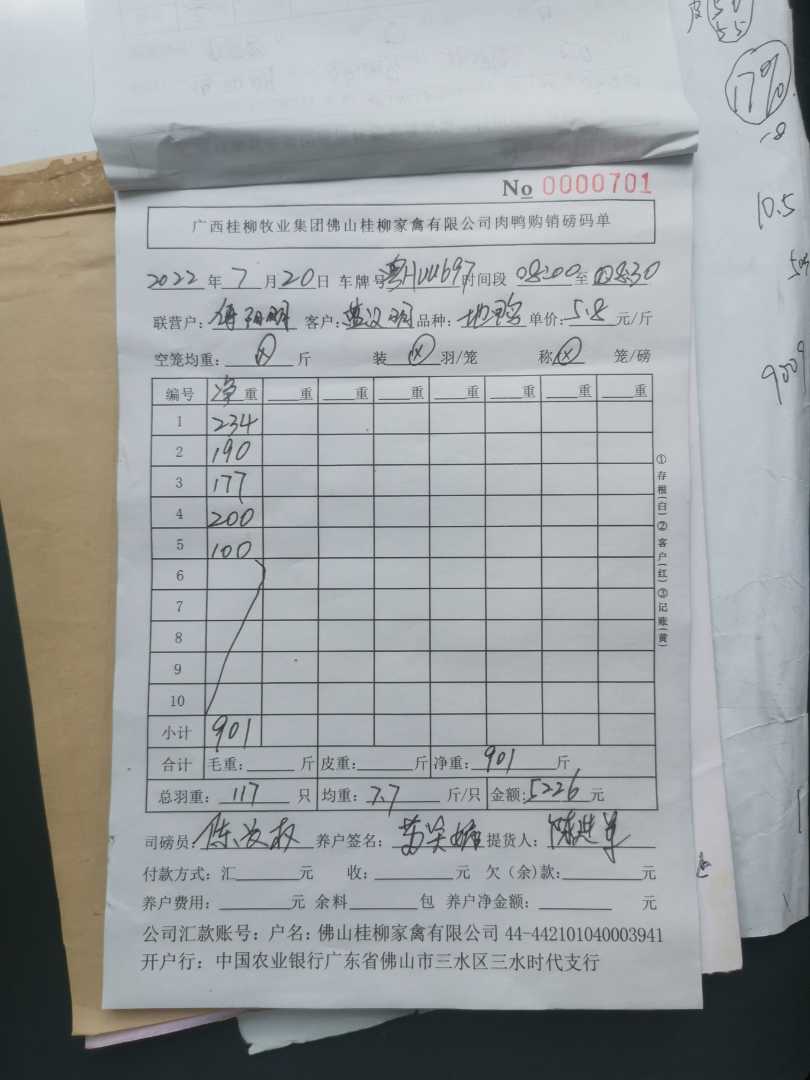 皮
55
17%
-8
10.5
9009
No 0000701
广西桂柳牧业集团佛山桂柳家禽有限公司肉鸭购销磅码单
2022年7月20日 车牌号 粤HUU697 时间段 08:00至08:30
联营户: 客户: 品种: 单价: 5.8 元/斤
空笼均重: ⊗ 斤 装 ⊗ 羽/笼 称 ⊗ 笼/磅
编号 净重 重 重 重 重 重 重 重
1 234
2 190
3 177
4 200
5 100
6
7
8
9
10
小计 901
合计 毛重: 斤 皮重: 斤 净重: 901 斤
总羽重: 117 只 均重: 7.7 斤/只 金额: 5226 元
司磅员 陈 养户签名: 提货人:
付款方式: 汇 元 收: 元 欠(余)款: 元
养户费用: 元 余料 包 养户净金额: 元
公司汇款账号: 户名: 佛山桂柳家禽有限公司 44-442101040003941
开户行: 中国农业银行广东省佛山市三水区三水时代支行
①存根(白)②客户(红)③记账(黄)